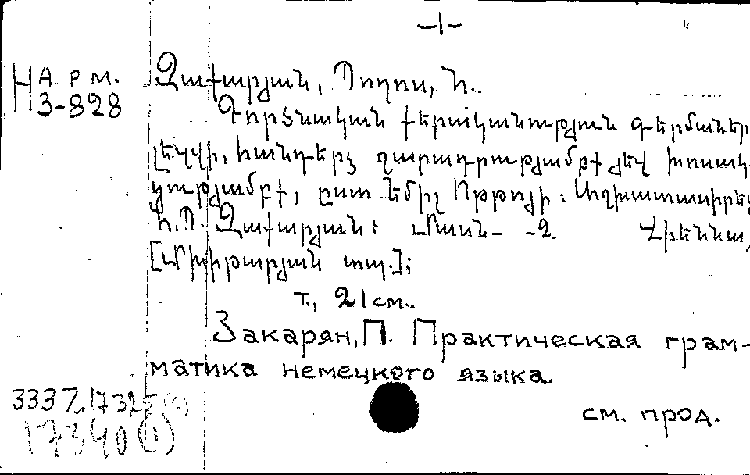 -1-
На рм.
З-828
Զաքարյան, Պողոս, Ն.
Գործնական քերականություն գերմաներ
լեզվի, հանդերձ շարադրությամբք եվ խոսակ
ցությամբք, ըստ Էմիլ Օթթոյի. Աշխատասիրեց
Ն.Պ. Զաքարյան: Մասն- -2. Վիեննա,
[Մխիթարյան տպ.];
т., 21см..
Закарян, П. Практическая грам-
матика немецкого языка.
3337, 1732
17340(1)
см. прод.